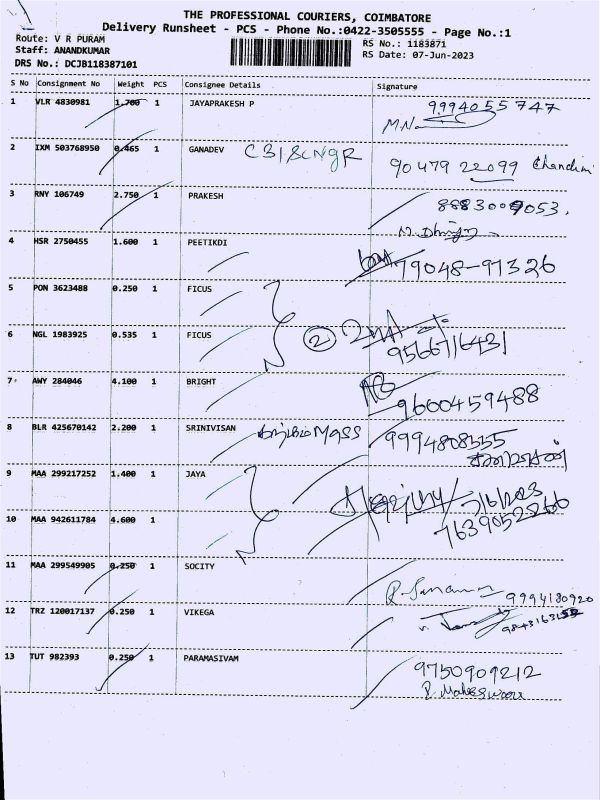 THE PROFESSIONAL COURIERS, COIMBATORE
Delivery Runsheet - PCS - Phone No.:0422-3505555 - Page No.:1
Route: V R PURAM
Staff: ANANDKUMAR
DRS No.: DCJB118387101
RS No.: 1183871
RS Date: 07-Jun-2023
S No Consignment No Weight PCS Consignee Details Signature
1 VLR 4830981 1.700 1 JAYAPRAKESH P 9994055747
M.N
2 IXM 503768950 0.465 1 GANADEV 90479 22099 Chandini
3 RNY 106749 2.750 1 PRAKESH 8883009053.
4 HSR 2750455 1.600 1 PEETIKDI 79048-97326
5 PON 3623488 0.250 1 FICUS
6 NGL 1983925 0.535 1 FICUS 2 9566716431
7 AWY 284046 4.100 1 BRIGHT 9600459488
8 BLR 425670142 2.200 1 SRINIVISAN 9994808555
9 MAA 299217252 1.400 1 JAYA
10 MAA 942611784 4.600 1 7639052266
11 MAA 299549905 0.250 1 SOCITY 9994180920
12 TRZ 120017137 0.250 1 VIKEGA
13 TUT 982393 0.250 1 PARAMASIVAM 9750909212
R. Maheswari